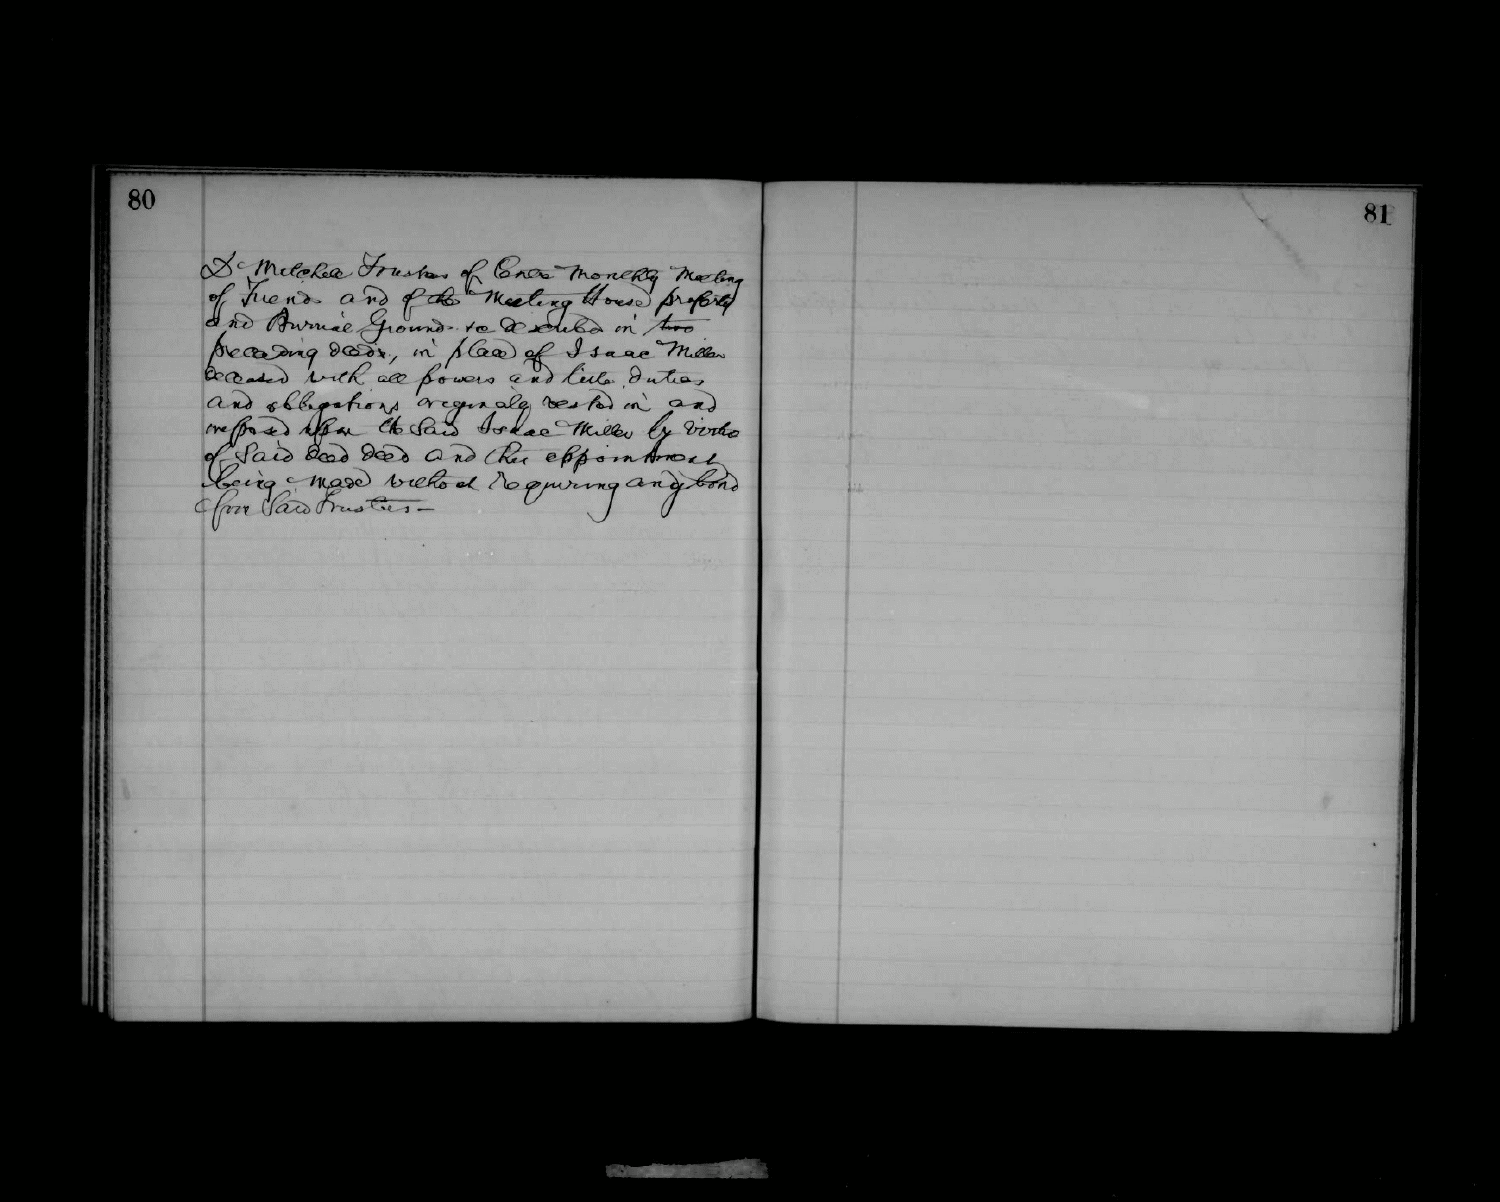 80
D. Mitchell Trustees of Centre Monthly Meeting
of Friends and of the Meeting House property
and Burial Ground as described in two
preceding deeds, in place of Isaac Miller
deceased with all powers and title, duties
and obligations originally vested in and
imposed upon the Said Isaac Miller by virtue
of Said deed deed and this appointment
being made without requiring any bond
from Said Trustees —
81